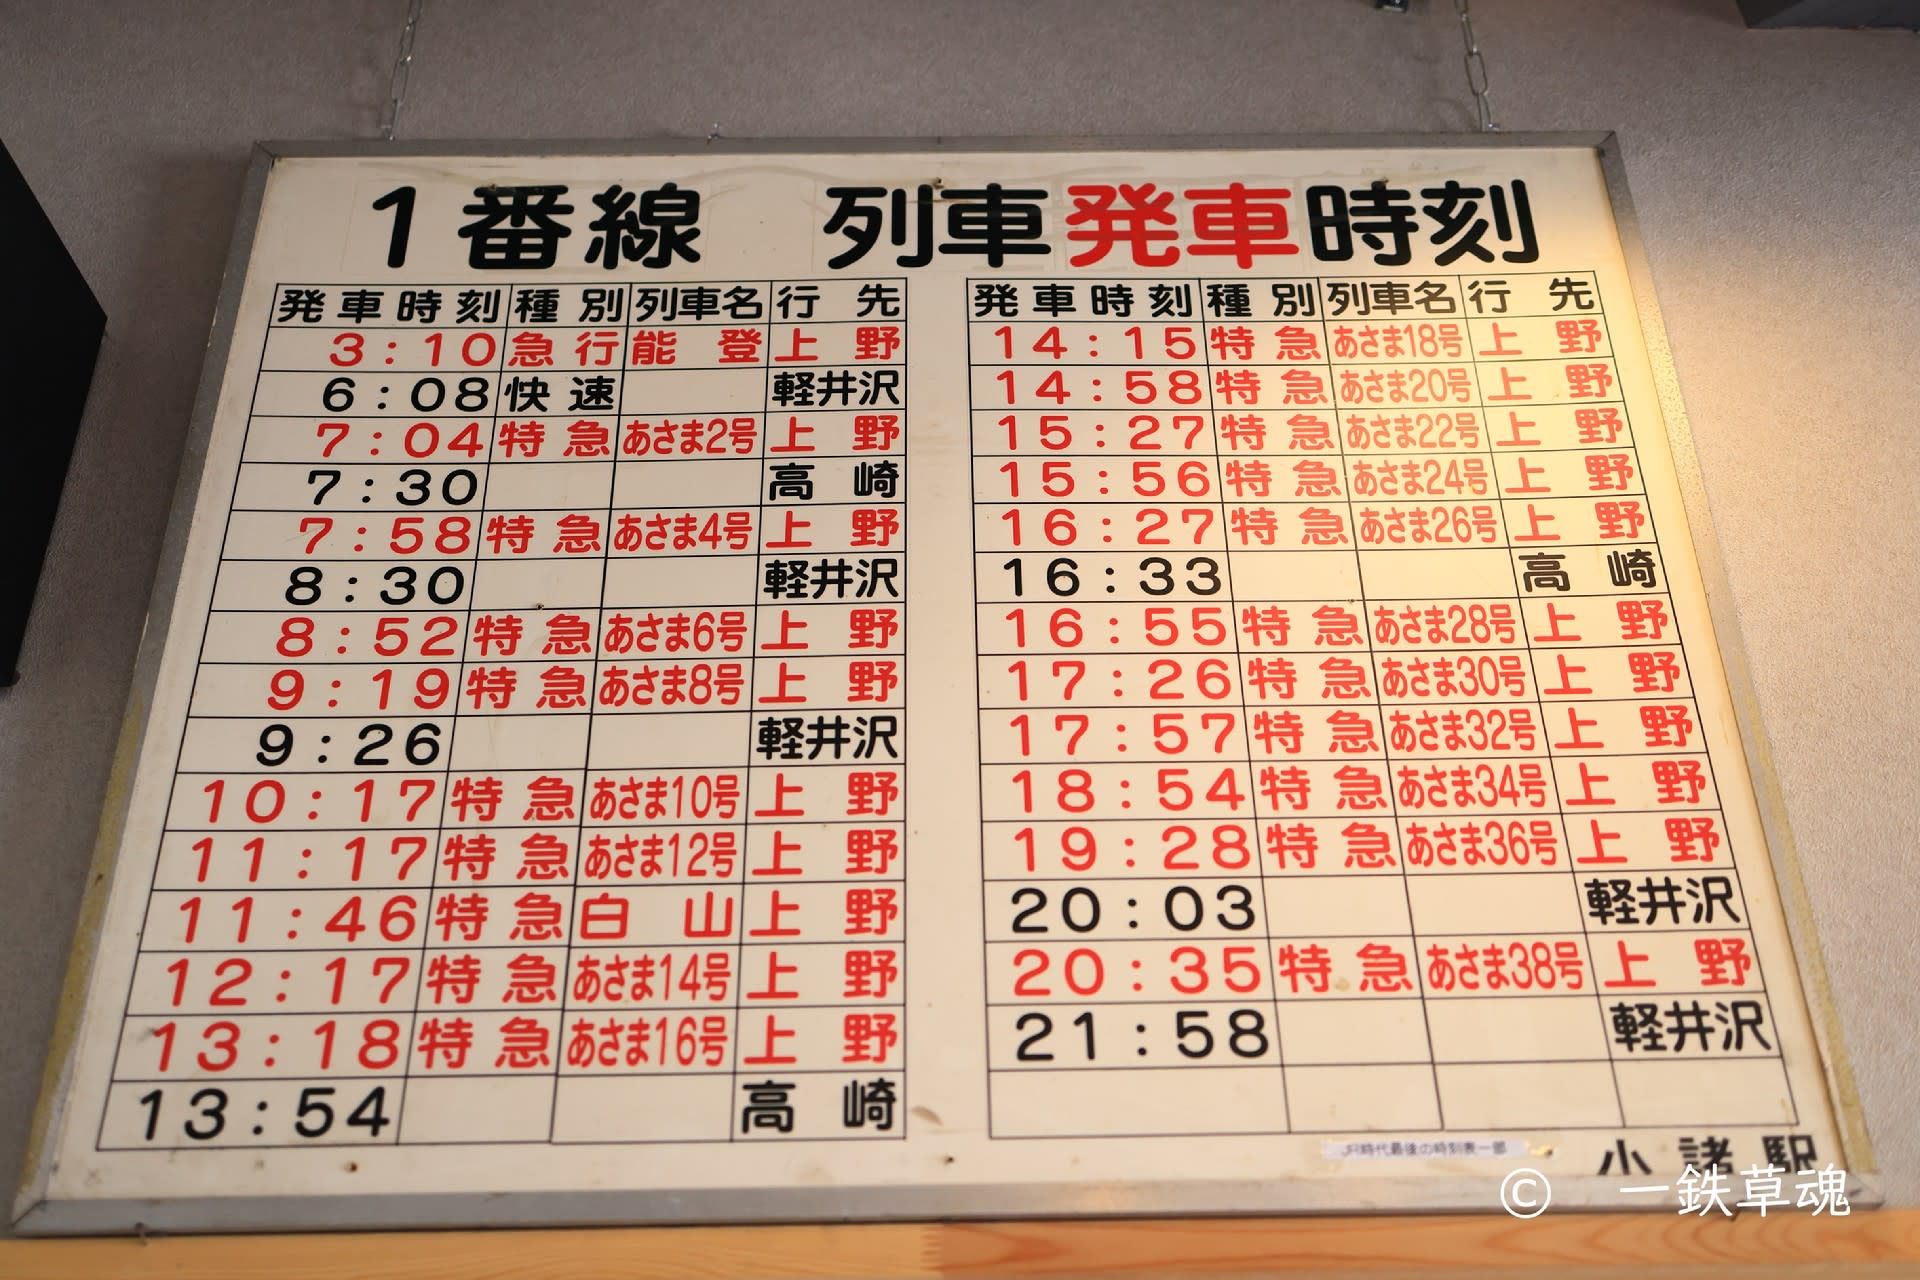 1番線 列車発車時刻
発車時刻 種別 列車名 行先
3:10 急行 能登 上野
6:08 快速 軽井沢
7:04 特急 あさま2号 上野
7:30 高崎
7:58 特急 あさま4号 上野
8:30 軽井沢
8:52 特急 あさま6号 上野
9:19 特急 あさま8号 上野
9:26 軽井沢
10:17 特急 あさま10号 上野
11:17 特急 あさま12号 上野
11:46 特急 白山 上野
12:17 特急 あさま14号 上野
13:18 特急 あさま16号 上野
13:54 高崎
発車時刻 種別 列車名 行先
14:15 特急 あさま18号 上野
14:58 特急 あさま20号 上野
15:27 特急 あさま22号 上野
15:56 特急 あさま24号 上野
16:27 特急 あさま26号 上野
16:33 高崎
16:55 特急 あさま28号 上野
17:26 特急 あさま30号 上野
17:57 特急 あさま32号 上野
18:54 特急 あさま34号 上野
19:28 特急 あさま36号 上野
20:03 軽井沢
20:35 特急 あさま38号 上野
21:58 軽井沢
JR時代最後の時刻表一部
小諸駅
© 一鉄草魂